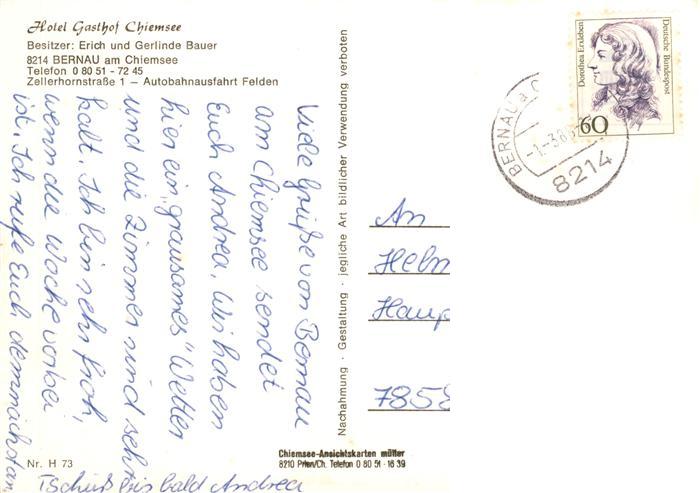 Hotel Gasthof Chiemsee
Besitzer: Erich und Gerlinde Bauer
8214 BERNAU am Chiemsee
Telefon 0 80 51 - 72 45
Zellerhornstraße 1 — Autobahnausfahrt Felden
Viele Grüße von Bernau
am Chiemsee sendet
Euch Andrea. Wir haben
hier ein „grausames" Wetter
und die Zimmer sind sehr
kalt. Ich bin sehr froh,
wenn die Woche vorbei
ist. Ich rufe Euch demnächst an.
Tschüß bis bald Andrea
Nr. H 73
Nachahmung · Gestaltung · jegliche Art bildlicher Verwendung verboten
Chiemsee-Ansichtskarten müller
8210 Prien/Ch. Telefon 0 80 51 - 16 39
Dorothea Erxleben
Deutsche Bundespost
60
BERNAU a C
-1.-3.8
8214
An
Helm
Haup
7858